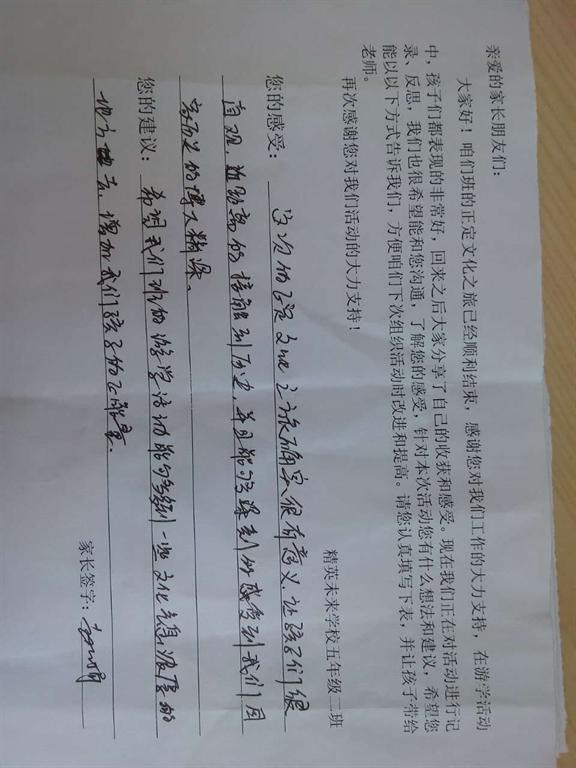 亲爱的家长朋友们：
大家好！咱们班的正定文化之旅已经顺利结束，感谢您对我们工作的大力支持，在游学活动
中，孩子们都表现的非常好，回来之后大家分享了自己的收获和感受。现在我们正在对活动进行记
录、反思，我们也很希望能和您沟通，了解您的感受，针对本次活动您有什么想法和建议，希望您
能以以下方式告诉我们，方便咱们下次组织活动时改进和提高。请您认真填写下表，并让孩子带给
老师。
再次感谢您对我们活动的大力支持！
精英未来学校五年级二班
您的感受：这次的正定文化之旅确实很有意义，让孩子们很
直观，近距离的接触到历史，并且能够深刻的感受到我们国
家历史的博大精深。
您的建议：希望我们班的游学活动能够多组织一些文化气息浓厚的
地方去，增加我们孩子的
家长签字：